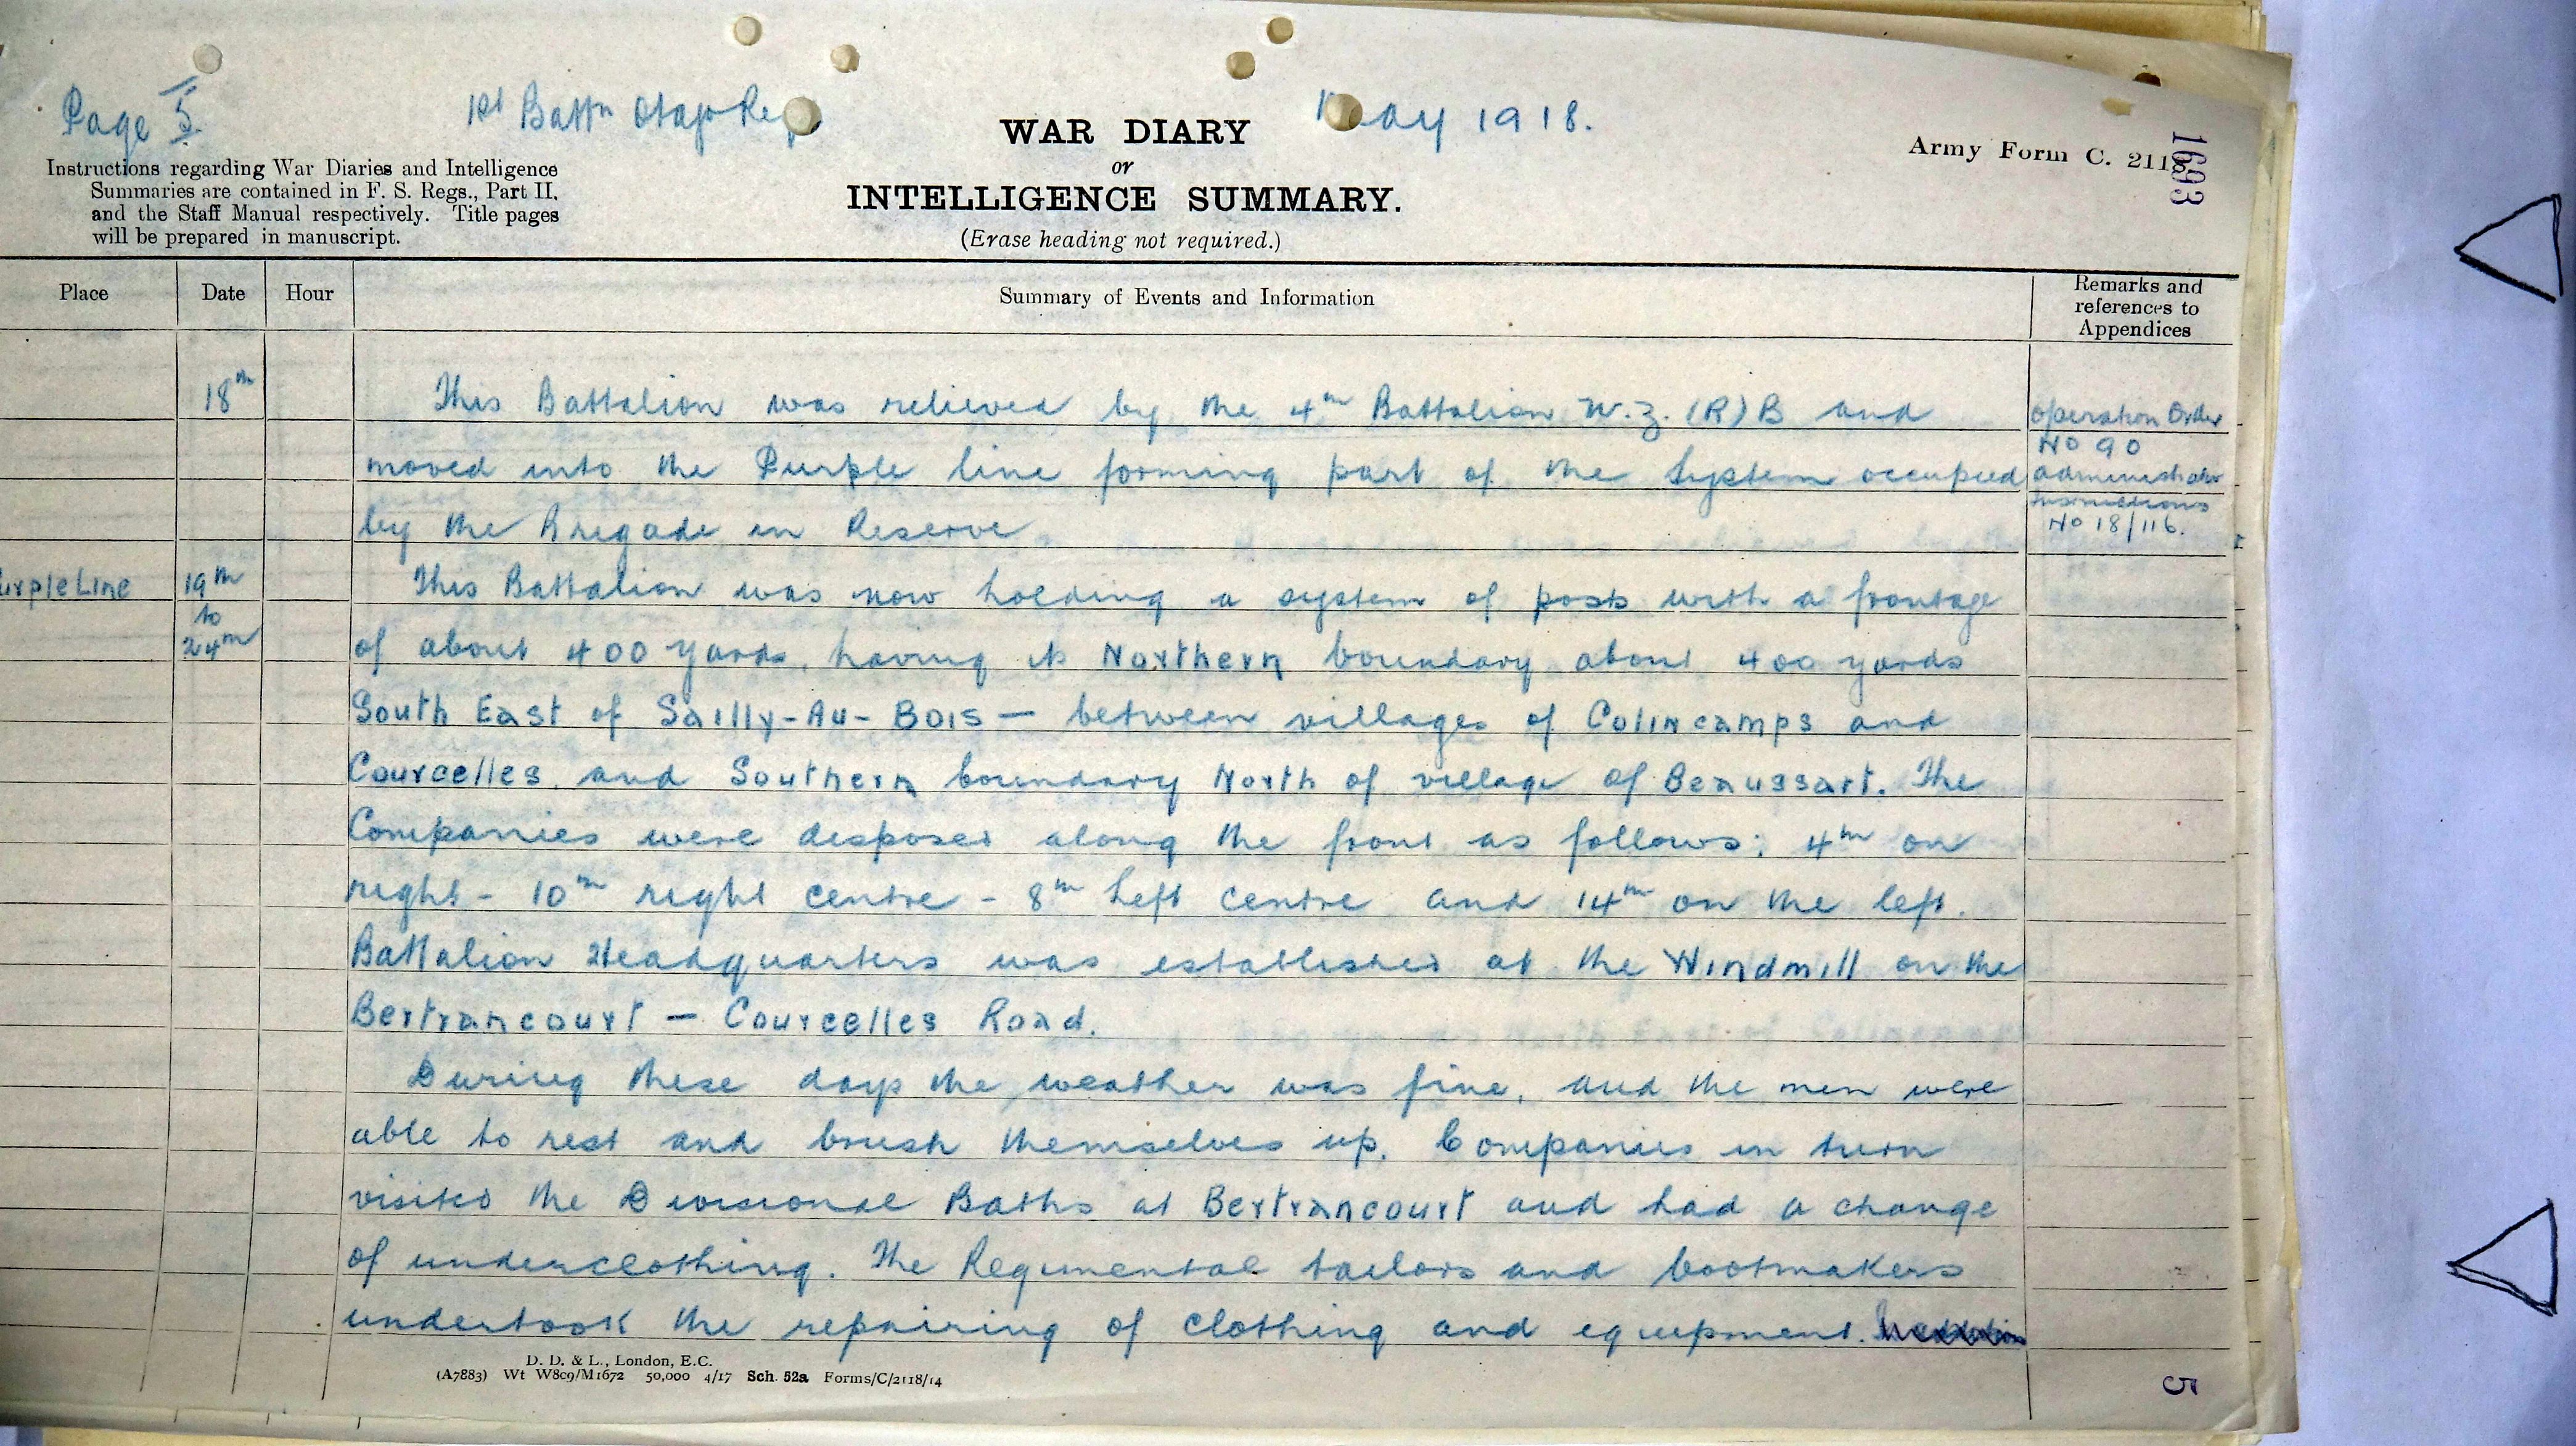 Page 5.
1st Battn Otago Reg
May 1918.
WAR DIARY
or
INTELLIGENCE SUMMARY.
(Erase heading not required.)
Army Form C. 2118
1693
Instructions regarding War Diaries and Intelligence
Summaries are contained in F. S. Regs., Part II.
and the Staff Manual respectively. Title pages
will be prepared in manuscript.
Place Date Hour Summary of Events and Information Remarks and
references to
Appendices
18th This Battalion was relieved by the 4th Battalion N.Z. (R) B and Operation Order
No 90
moved into the Purple line forming part of the System occupied Administrative
Instructions
by the Brigade in Reserve No 18/116.
urple Line 19th This Battalion was now holding a system of posts with a frontage
to
24th of about 400 yards, having its Northern boundary about 400 yards
South East of Sailly-Au-Bois — between villages of Colincamps and
Courcelles, and Southern boundary North of village of Beaussart. The
Companies were disposed along the front as follows: 4th on
right - 10th right centre - 8th Left centre and 14th on the left.
Battalion Headquarters was established at the Windmill on the
Bertrancourt — Courcelles Road.
During these days the weather was fine, and the men were
able to rest and brush themselves up. Companies in turn
visited the Divisional Baths at Bertrancourt and had a change
of underclothing. The Regimental tailors and bootmakers
undertook the repairing of clothing and equipment.
D. D. & L., London, E.C.
(A7883) Wt W8c9/M1672 50,000 4/17 Sch. 52a Forms/C/2118/14
5